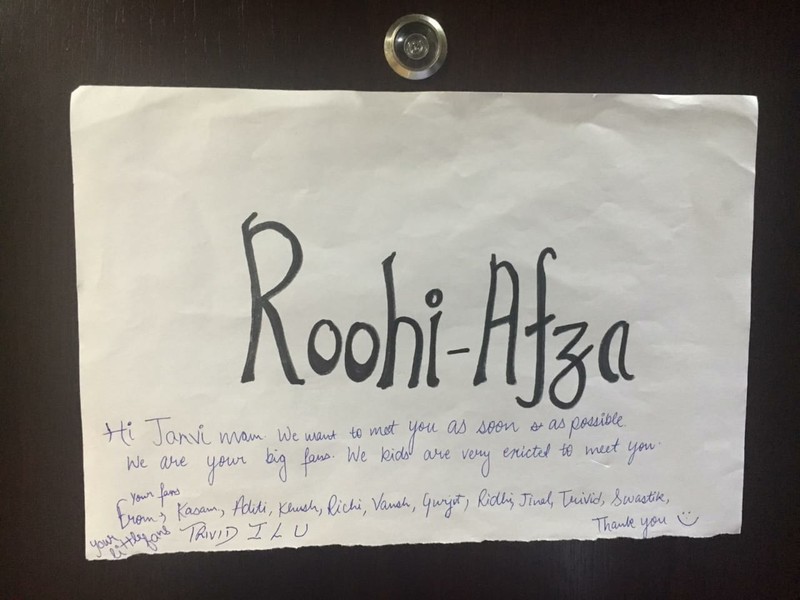 Roohi-Afza
Hi Janvi mam. We want to met you as soon as as possible
We are your big fans. We kids are very exricted to meet you.
your fans
From; Kasam, Aditi, Khush, Richi, Vansh, Gurjot, Ridhi, Jinal, Trivid, Swastik,
your little fans
TRIVID I L U
Thank you